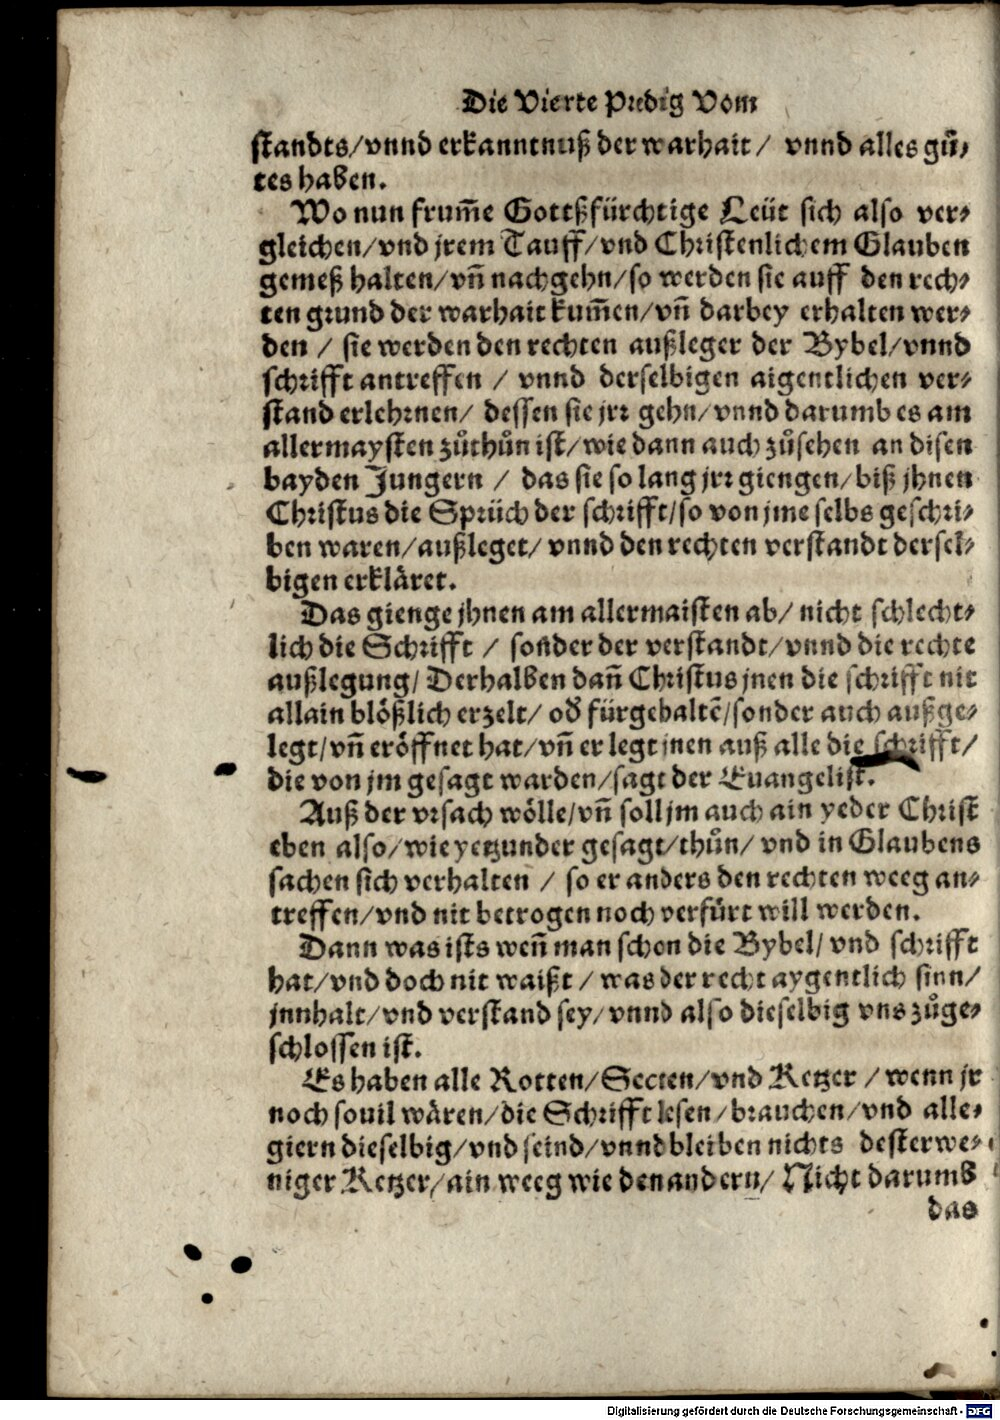 Die Vierte Predig Vom
standts/vnnd erkanntnuß der warhait/ vnnd alles gů-
tes haben.
Wo nun frum̃e Gottßfürchtige Leüt sich also ver-
gleichen/vnd jrem Tauff/vnd Christenlichem Glauben
gemeß halten/vn̄ nachgehn/so werden sie auff den rech-
ten grund der warhait kum̃en/vn̄ darbey erhalten wer-
den / sie werden den rechten außleger der Bybel/vnnd
schrifft antreffen / vnnd derselbigen aigentlichen ver-
stand erlehrnen/ dessen sie jrr gehn/vnnd darumb es am
allermaysten zůthůn ist/wie dann auch zůsehen an disen
bayden Jungern / das sie so lang jrr giengen/biß jhnen
Christus die Sprüch der schrifft/so von jme selbs geschri-
ben waren/außleget/ vnnd den rechten verstandt dersel-
bigen erkläret.
Das gienge jhnen am allermaisten ab/ nicht schlecht-
lich die Schrifft / sonder der verstandt/vnnd die rechte
außlegung/ Derhalben dan̄ Christus jnen die schrifft nit
allain blößlich erzelt/ od̓ fürgehaltē/sonder auch außge-
legt/vn̄ eröffnet hat/vn̄ er legt jnen auß alle die schrifft/
die von jm gesagt warden/sagt der Euangelist.
Auß der vrsach wölle/vn̄ soll jm auch ain yeder Christ
eben also/wie yetzunder gesagt/thůn/ vnd in Glaubens
sachen sich verhalten / so er anders den rechten weeg an-
treffen/vnd nit betrogen noch verfürt will werden.
Dann was ists wen̄ man schon die Bybel/ vnd schrifft
hat/vnd doch nit waißt / was der recht aygentlich sinn/
jnnhalt/vnd verstand sey/vnnd also dieselbig vns zůge-
schlossen ist.
Es haben alle Rotten/Secten/vnd Ketzer / wenn jr
noch souil wären/die Schrifft lesen/brauchen/vnd alle-
giern dieselbig/vnd seind/vnnd bleiben nichts desterwe-
niger Ketzer/ain weeg wie den andern/ Nicht darumb
das
Digitalisierung gefördert durch die Deutsche Forschungsgemeinschaft - DFG